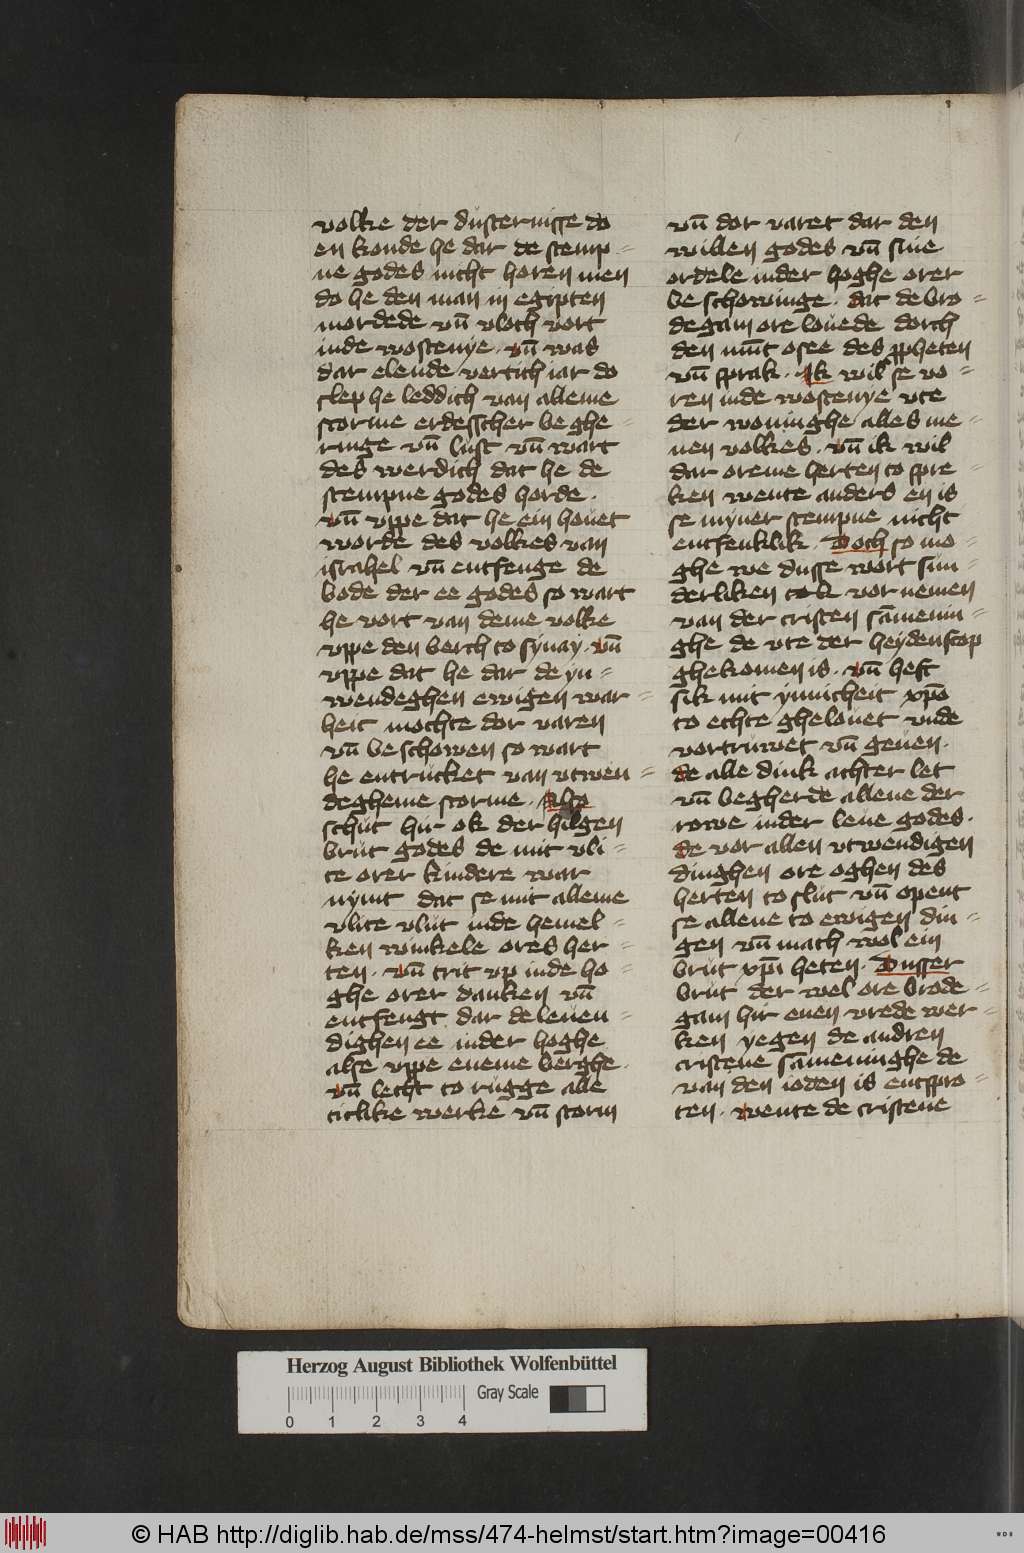 volke der düsternisse do
en konde he dar de stemp=
ne godes nicht horen men
do he den man in egipten
mordede vn̄ vloch vort
inde wostenye · vn̄ was
dar elende vertich iar do
slep he leddich van alleme
storme erdesscher beghe=
ringe vn̄ lust vn̄ wart
des werdich dat he de
stempne godes horde ·
vn̄ vppe dat he ein houet
worde des volkes van
israhel vn̄ entfenge de
bode der ee godes so wart
he vort van deme volke
vppe den berch to synay · vn̄
vppe dat he dar de yn=
wendeghen ewigen war=
heit mochte dor varen
vn̄ beschowen so wart
he entrücket van vtwen=
degheme storme · Also
schüt hir ok der hilgen
brüt godes de mit vli=
te orer kindere war
nymt dat se mit alleme
vlite vlüt inde hemel=
ken winkele ores her=
ten · vn̄ trit vp inde ho=
ghe orer danken vn̄
entfengt dar de leuen=
dighen ee inder hoghe
alse vppe eneme berghe ·
vn̄ lecht to rügge alle
titlike werke vn̄ storm
vn̄ dor varet dar den
willen godes vn̄ sine
ordele inder hoghe orer
beschowinge · dat de bro=
degam ore louede dorch
den mūt osee des ꝓpheten
vn̄ sprak · Ik wil se vo=
ren inde wostenye vte
der woninghe alles me=
nen volkes · vn̄ ik wil
dar oreme herten to spre=
ken wente anders en is
se myner stempne nicht
entfenklik · Doch so mo=
ghe we dusse wort sun=
derliken tok vornemen
van der cristen sāmenin=
ghe de vte der heydenscop
ghekomen is · vn̄ heft
sik mit ynnicheit xp̄o
to echte ghelouet vnde
vortruwet vn̄ geuen ·
de alle dink achter let
vn̄ begherde allene der
rowe inder leue godes ·
de vor allen vtwendigen
dinghen ore oghen des
herten to slüt vn̄ opent
se allene to ewigen din=
gen vn̄ mach wol ein
brüt xp̄i heten · Dusser
brüt der wel ore brode=
gam hir euen vrede wer=
ken yegen de andren
cristene sāmeninghe de
van den ioden is entspro=
ten · wente de cristene
Herzog August Bibliothek Wolfenbüttel
Gray Scale
0 1 2 3 4
© HAB http://diglib.hab.de/mss/474-helmst/start.htm?image=00416